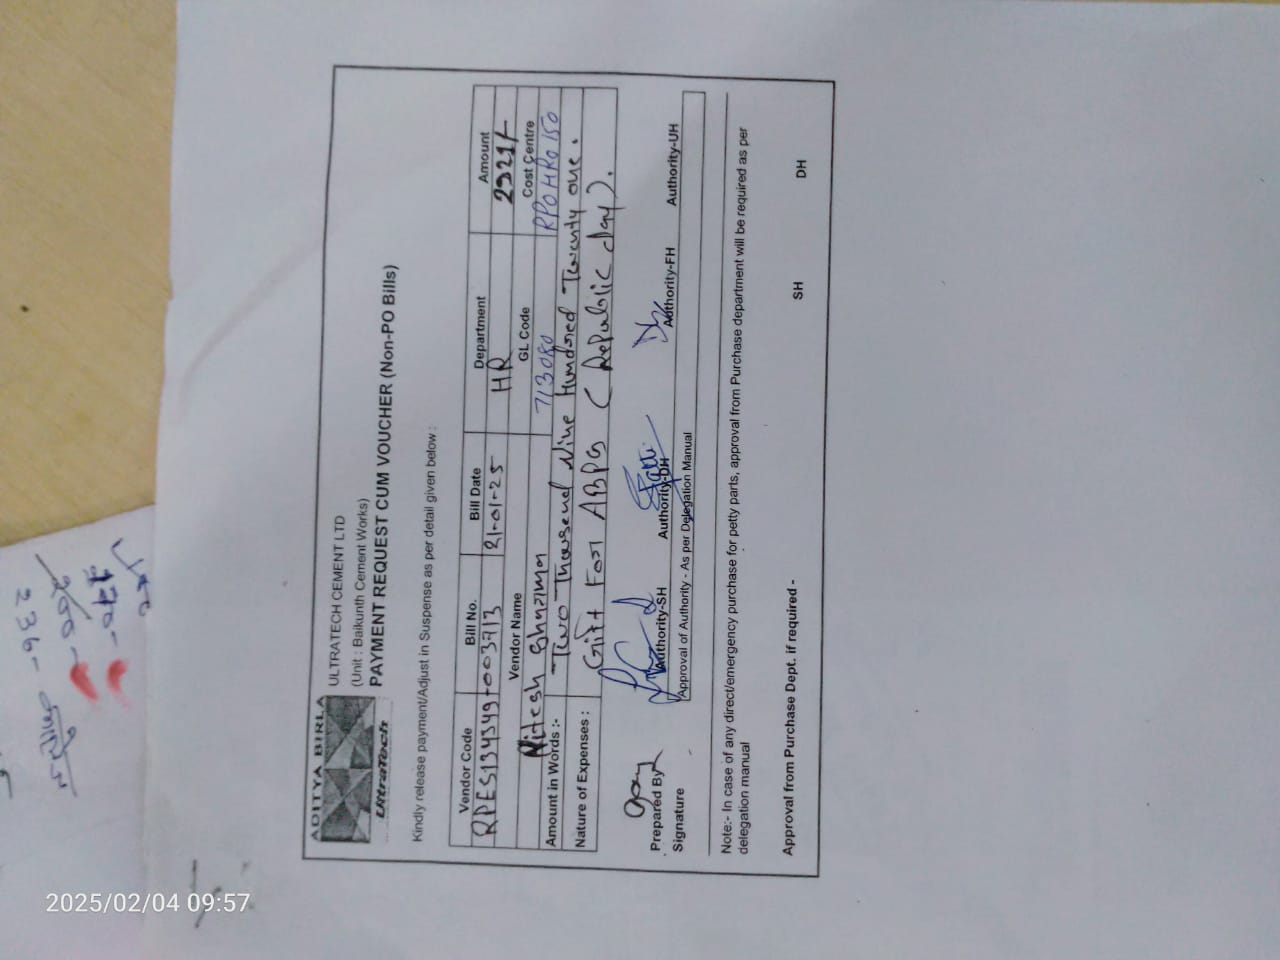 2025/02/04 09:57
236-
200-
170-
ADITYA BIRLA
UltraTech
ULTRATECH CEMENT LTD
(Unit : Baikunth Cement Works)
PAYMENT REQUEST CUM VOUCHER (Non-PO Bills)
Kindly release payment/Adjust in Suspense as per detail given below :
Vendor Code Bill No. Bill Date Department Amount
RPES134349 003713 21-01-25 HR 2921/-
Vendor Name GL Code Cost Centre
Nitesh Sharma 713080 RP0HR0150
Amount in Words :- Two Thousend Nine Hundred Twenty one .
Nature of Expenses : Gift For ABPS (Republic day).
Prepared By Authority-SH Authority-DH Authority-FH Authority-UH
Signature Approval of Authority - As per Delegation Manual
Note:- In case of any direct/emergency purchase for petty parts, approval from Purchase department will be required as per
delegation manual
Approval from Purchase Dept. if required - SH DH